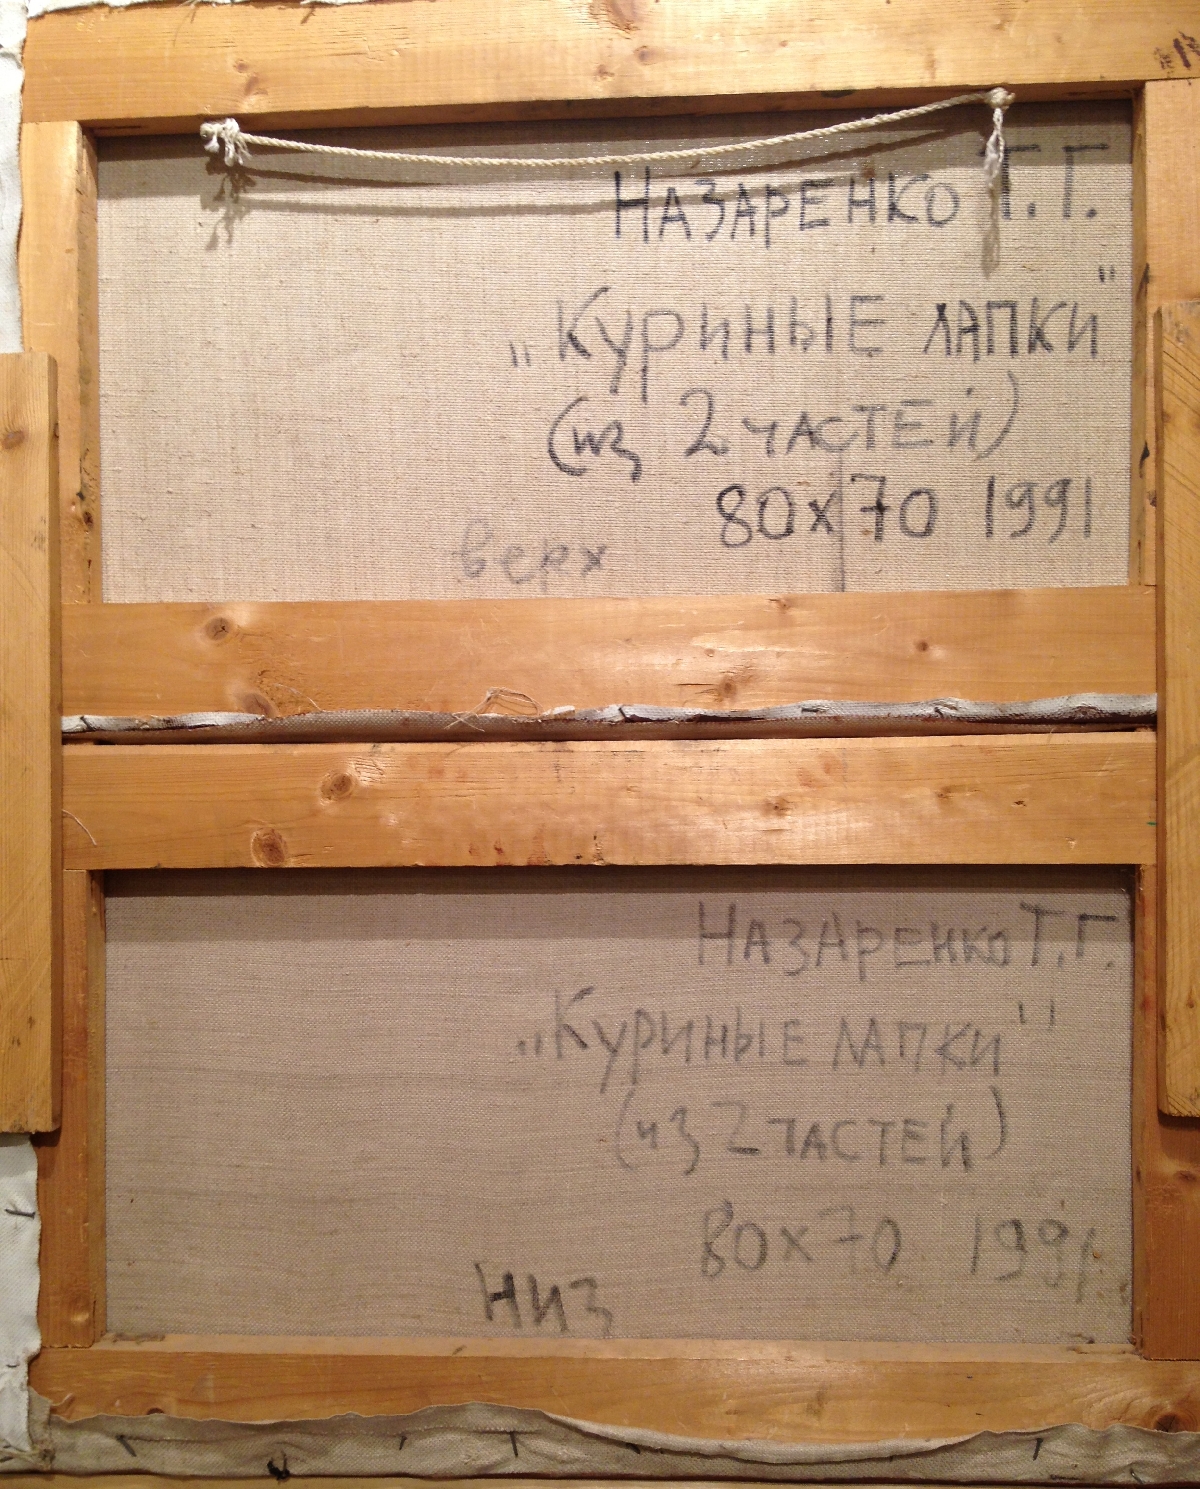 НАЗАРЕНКО Т.Г.
„КУРИНЫЕ ЛАПКИ"
(из 2 ЧАСТЕЙ)
80х70 1991
верх
НАЗАРЕНКО Т.Г.
„КУРИНЫЕ ЛАПКИ"
(из 2 ЧАСТЕЙ)
80х70 1991
НИЗ